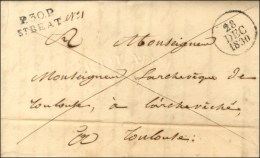 P.30.P
ST BEAT N°1
28
DEC
1830
A Monseigneur
Monseigneur L'archevêque de
Toulouse, à L'archevêché,
Toulouse.